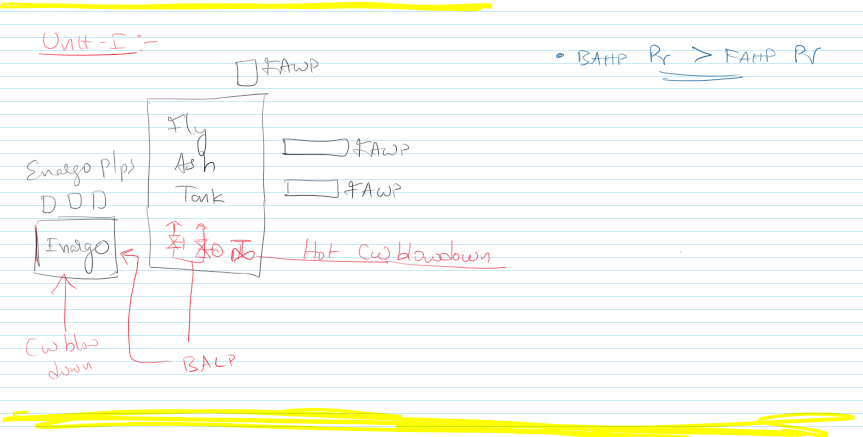 Unit-I :-
• BAHP Pr > FAHP Pr
FAWP
Fly
Ash
Tank
FAWP
FAWP
Enargo P/ps
Enargo
Hot CW blowdown
CW blow
down
BALP